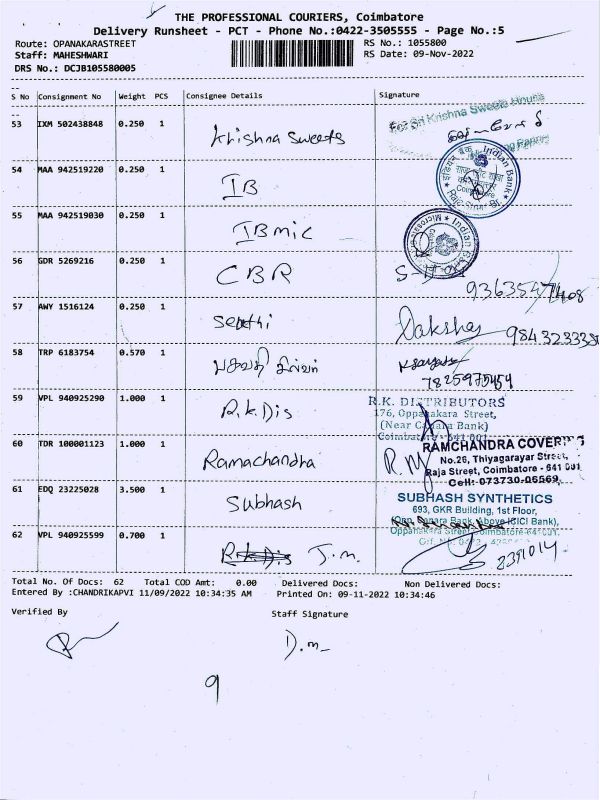 THE PROFESSIONAL COURIERS, Coimbatore
Delivery Runsheet - PCT - Phone No.:0422-3505555 - Page No.:5
Route: OPANAKARASTREET
RS No.: 1055800
Staff: MAHESHWARI
RS Date: 09-Nov-2022
DRS No.: DCJB105580005
S No Consignment No Weight PCS Consignee Details Signature
53 IXM 502438848 0.250 1 Krishna Sweets For Sri Krishna Sweets
54 MAA 942519220 0.250 1 IB Indian Bank
55 MAA 942519030 0.250 1 IBmic
56 GDR 5269216 0.250 1 CBR
57 AWY 1516124 0.250 1
58 TRP 6183754 0.570 1
7825975454
59 VPL 940925290 1.000 1 R.K.Dis R.K. DISTRIBUTORS
176, Oppanakara Street,
(Near Canara Bank)
Coimbatore - 641 001
60 TDR 100001123 1.000 1 Ramachandra RAMCHANDRA
No.26, Thiyagarayar Street,
Raja Street, Coimbatore - 641 001
Cell: 073730-05569
61 EDQ 23225028 3.500 1 Subhash SUBHASH SYNTHETICS
693, GKR Building, 1st Floor,
(Opp. Canara Bank, Above ICICI Bank),
62 VPL 940925599 0.700 1 R.K.Dis J.m.
Total No. Of Docs: 62 Total COD Amt: 0.00 Delivered Docs: Non Delivered Docs:
Entered By :CHANDRIKAPVI 11/09/2022 10:34:35 AM Printed On: 09-11-2022 10:34:46
Verified By Staff Signature
D.m
9